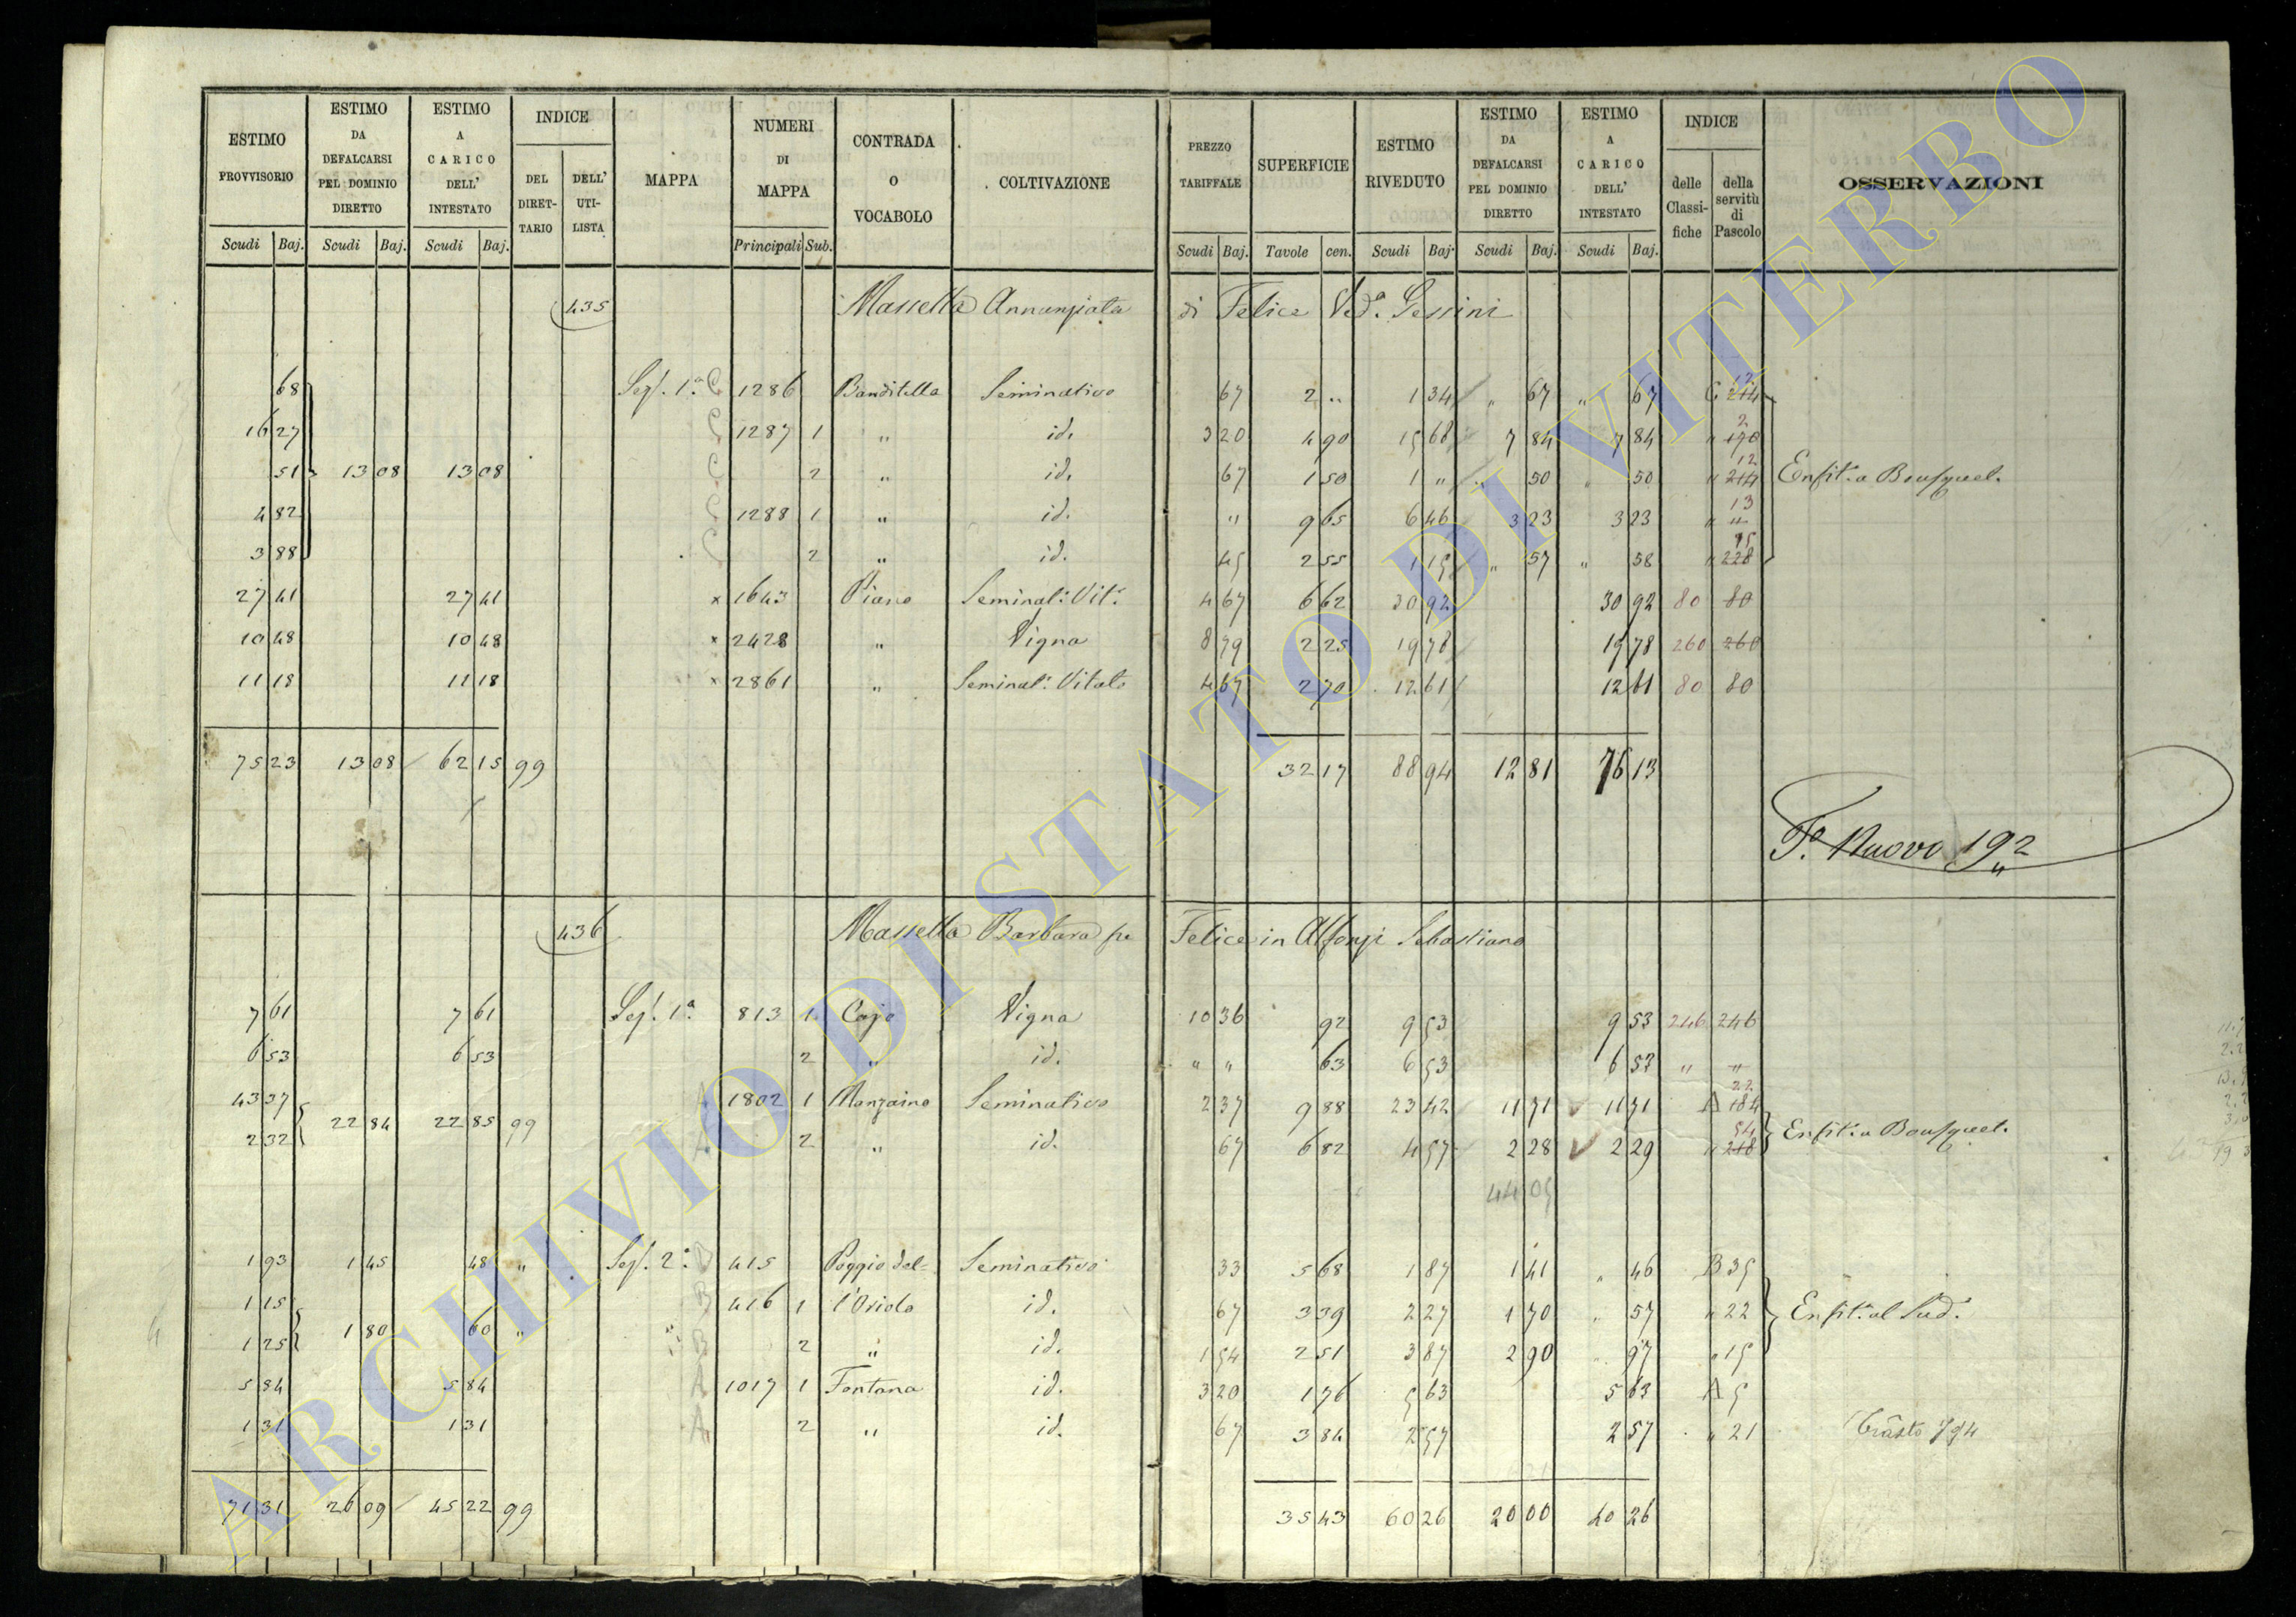 ESTIMO PROVVISORIO Scudi Baj.
ESTIMO DA DEFALCARSI PEL DOMINIO DIRETTO Scudi Baj.
ESTIMO A CARICO DELL' INTESTATO Scudi Baj.
INDICE DEL DIRET-TARIO DELL' UTI-LISTA
MAPPA
NUMERI DI MAPPA Principali Sub.
CONTRADA O VOCABOLO
COLTIVAZIONE
PREZZO TARIFFALE Scudi Baj.
SUPERFICIE Tavole cen.
ESTIMO RIVEDUTO Scudi Baj.
ESTIMO DA DEFALCARSI PEL DOMINIO DIRETTO Scudi Baj.
ESTIMO A CARICO DELL' INTESTATO Scudi Baj.
INDICE delle Classi-fiche della servitù di Pascolo
OSSERVAZIONI
435 Massella Annunziata di Felice Ved.ª
68 Sez. 1ª C 1286 Banditella Seminativo 67 2 " 1 34 " 67 " 67 C 214 12
16 27 C 1287 1 " id. 3 20 4 90 15 68 7 84 7 84 " 170 2
51 13 08 13 08 C 2 " id. 67 1 50 1 " " 50 " 50 " 214 12 Enfit.a Bousquet.
4 82 C 1288 1 " id. " 9 65 6 46 3 23 3 23 " " 13
3 88 C 2 " id. 45 2 55 1 15 " 57 " 58 " 228 15
27 41 27 41 x 1643 Piano Seminat.º Vit.º 4 67 6 62 30 92 30 92 80 80
10 48 10 48 x 2428 " Vigna 8 79 2 25 19 78 19 78 260 260
11 18 11 18 x 2861 " Seminat.º Vitato 4 67 2 70 12 61 12 61 80 80
75 23 13 08 62 15 99 32 17 88 94 12 81 76 13
F.º Nuovo 192
436 Massella Barbara fu Felice in Alfonzi Sebastiano
7 61 7 61 Sez. 1ª 813 1 Cajo Vigna 10 36 92 9 53 9 53 246 246
6 53 6 53 2 " id. " " 63 6 53 6 53 " "
43 37 A 1802 1 Manzaino Seminativo 2 37 9 88 23 42 11 71 11 71 A 184 22
22 84 22 85 99
2 32 A 2 " id. 67 6 82 4 57 2 28 2 29 " 218 54 Enfit.a Bousquet.
44 05
1 93 1 45 48 " Sez. 2ª B 415 Poggio del- Seminativo 33 5 68 1 87 1 41 " 46 B 35
1 15 B 416 1 l'Oriolo id. 67 3 39 2 27 1 70 " 57 " 22 Enfit. al Sud.º
1 80 60 "
1 25 B 2 " id. 1 54 2 51 3 87 2 90 " 97 " 15
5 84 5 84 A 1017 1 Fontana id. 3 20 1 76 5 63 5 63 A 5
1 31 1 31 A 2 " id. 67 3 84 2 57 2 57 " 21
71 31 26 09 45 22 99 35 43 60 26 20 00 40 26
ARCHIVIO DI STATO DI VITERBO